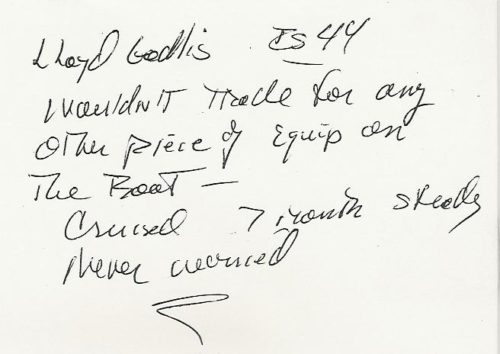 Lloyd IS 44
Wouldn't Trade for any
other piece of Equip on
The Boat —
Cruised 7 month steady
Never worried